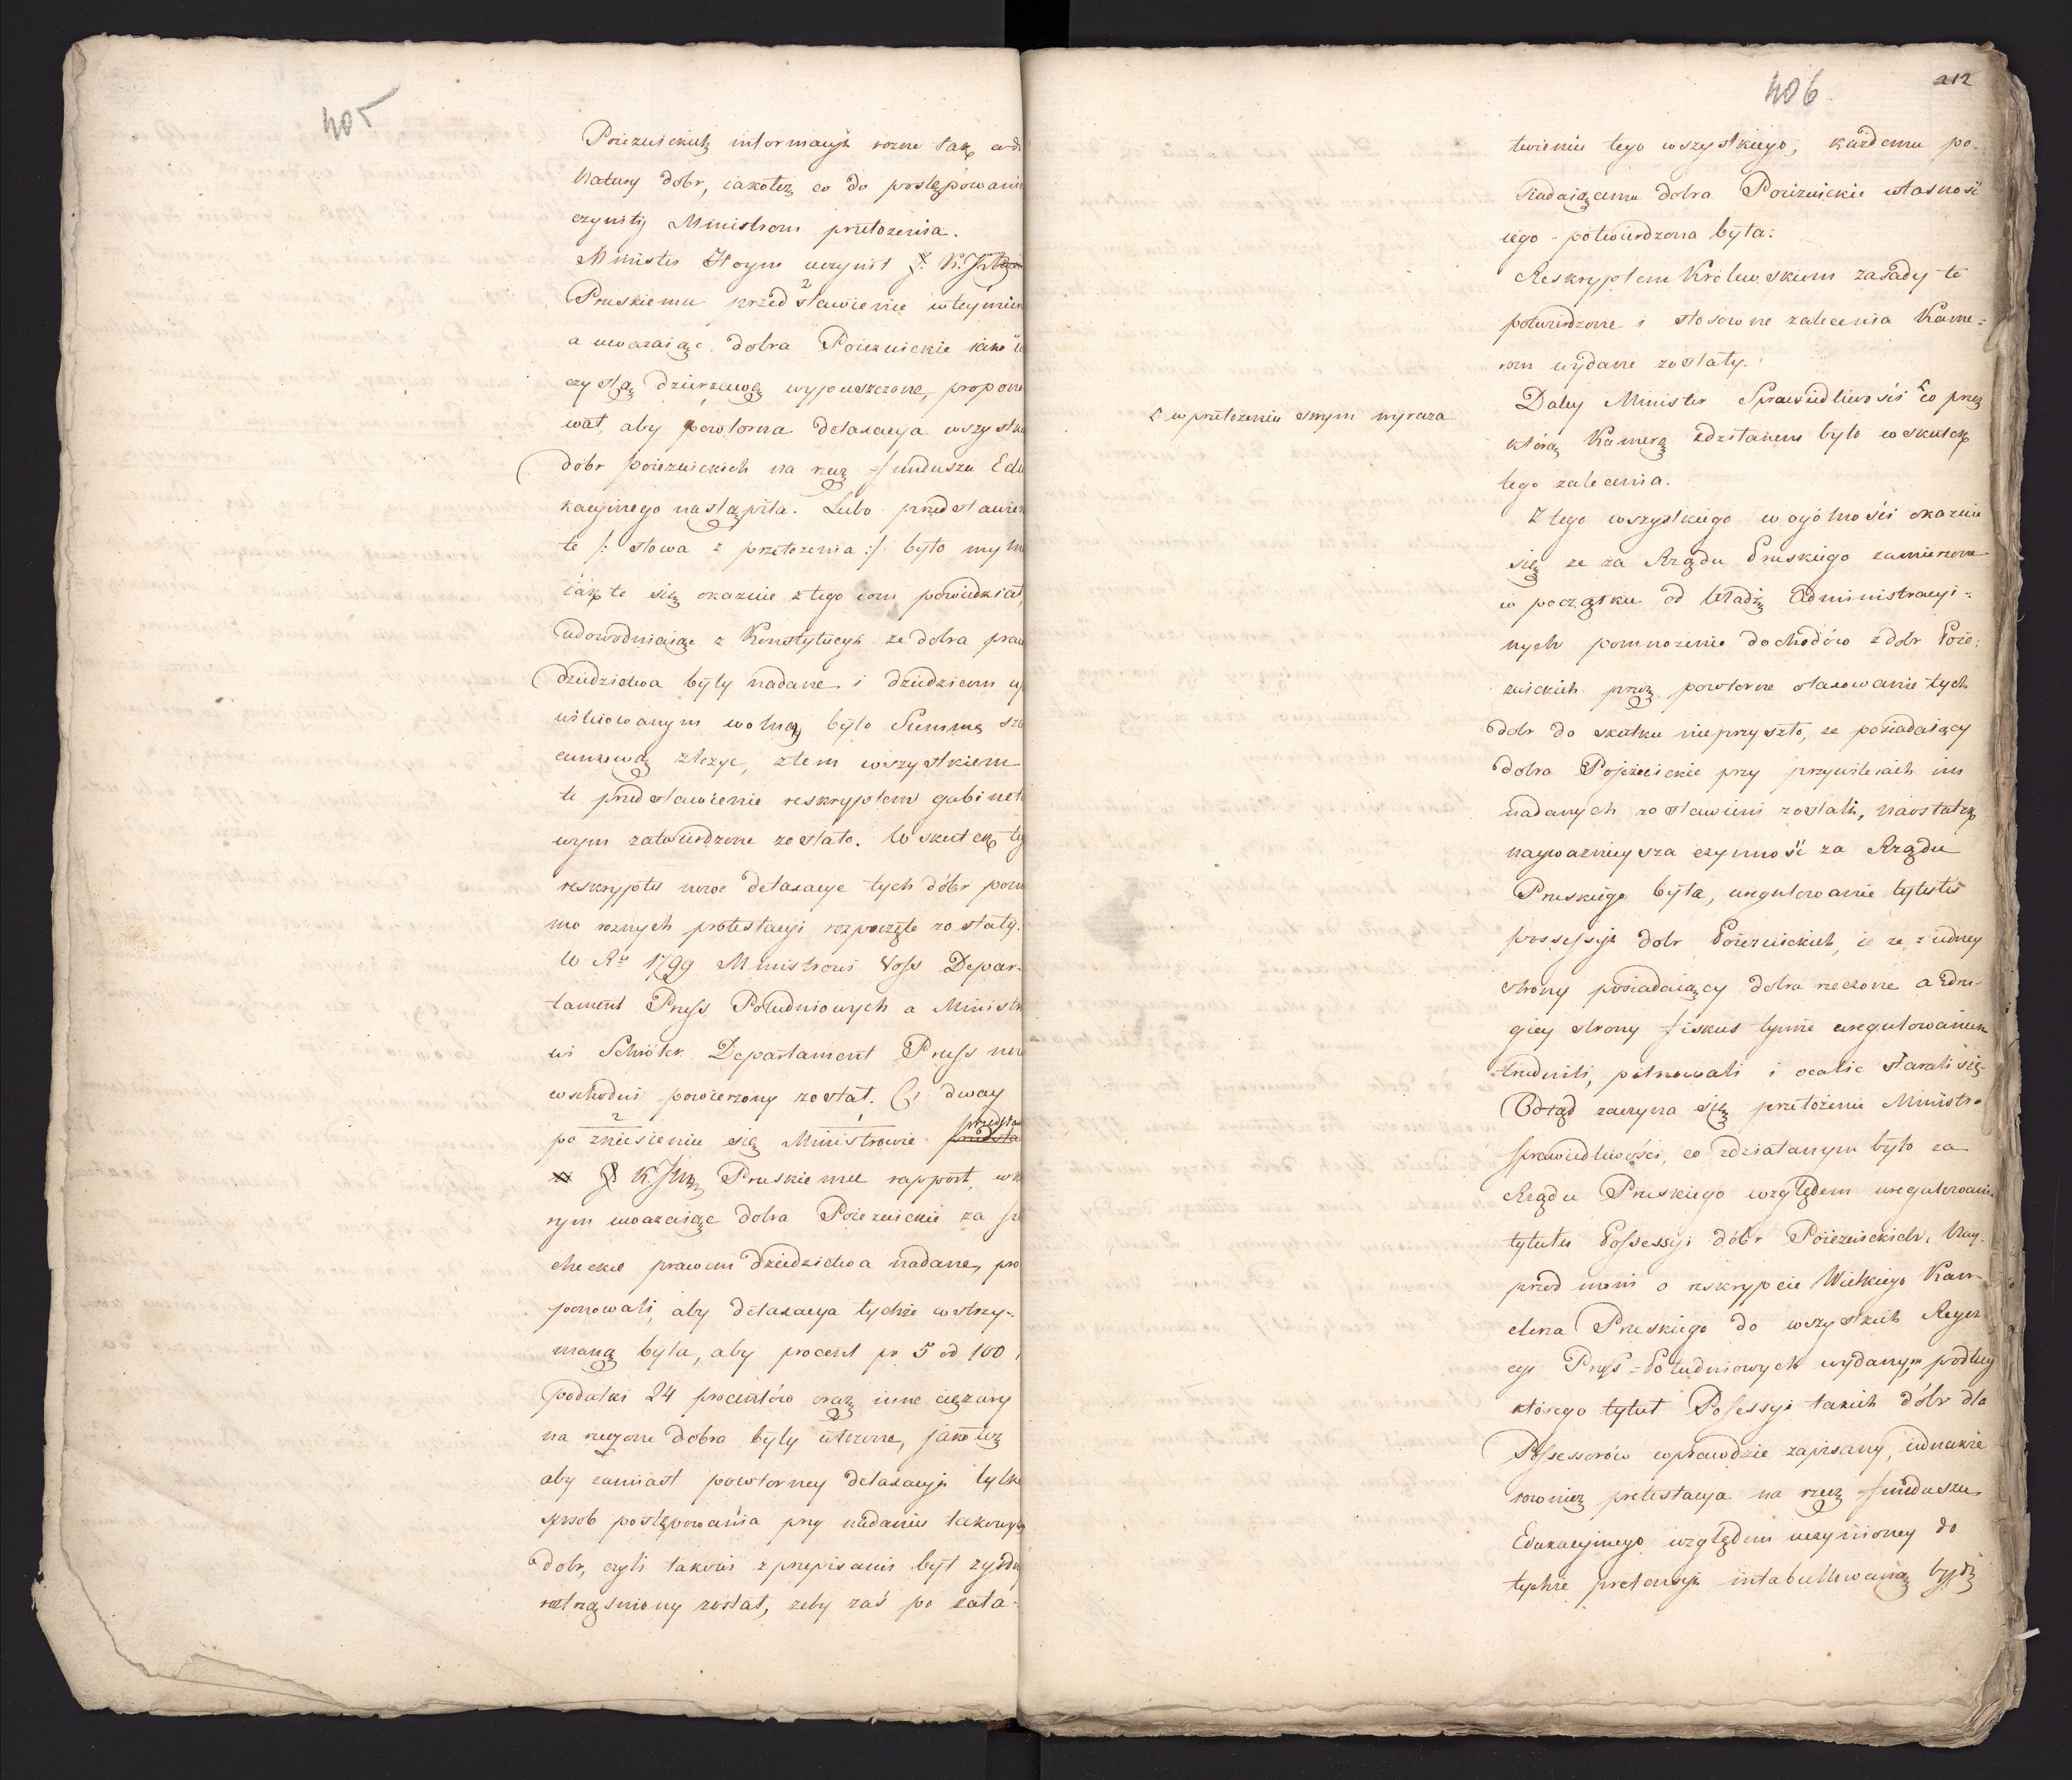 405
Poiezuickich informacyi rozne tak co do
Natury dobr, iakoteż co do postępowania
czynili Ministrom przełożenia.
Minister Hoym uczynił J. K.
Pruskiemu przedstawienie w tey mierze
a uwazaiąc dobra Poiezuickie iako w
czystą dzierzawę wypuszczone, propono
wał, aby powtorna detaxacya wszystkich
dóbr poiezuickich na rzecz funduszu Edu
kacyinego nastąpiła. Lubo przedstawien
te /: słowa z przełozenia :/ było mylne
iak to się okazuie z tego com powiedział,
udowodniaiąc z Konstytucyi ze dobra praw
dziedzictwa były nadane i dziedzicom u
wolną było Summę sza
cunkową złożyć, ztem wszystkiem
te przedstawienie reskryptem gabineto
wym zatwierdzone zostało. W skutek teg
reskryptu nowe detaxacye tych dóbr pom
mo roznych protestacyi rozpoczęte zostały.
W Rku 1799 Ministrowi Voss Depar-
tament Pruss Południowych a Ministro
wi Schröter Departament Pruss now
wschodni powierzony został. Ci dway
po zniesieniu się Ministrowie przedstaw
J K. Mci Pruskiemu rapport, w kt
rym uwazaiąc dobra Poiezuickie za szla
checkie prawem dziedzictwa nadane, pro
ponowali, aby detaxacya tychże wstrzy-
maną była, aby procent po 5 od 100,
podatki 24 procentów oraz inne ciężary
na rzeczone dobra były włożone, jakoteż
aby zamiast powtorney detaxacyi tylko
sposob postępowania przy nadaniu takowych
dobr, czyli takowi z przepisami był zgodny
roztrząśniony został, żeby zaś po zała-
406
212
twieniu tego wszystkiego, każdemu po-
siadaiącemu dobra Poiezuickie własność
iego potwierdzona była:
Reskryptem Królewskiem zasady te
potwierdzone i stosowne zalecenia Kame=
rom wydane zostały.
Daley Minister Sprawiedliwości co przez
w przełożeniu swym wyraza
którą Kamerę zdziałanem było w skutek
tego zalecenia.
Z tego wszystkiego w ogólności okazuie
się ze za Rządu Pruskiego zamierzone
w początku od Władz Administracyi=
nych pomnozenie dochodów z dobr Poie=
zuickich przez powtorne otaxowanie tych
dobr do skutku nieprzyszło, ze posiadaiący
dobra Pojezuickie przy przywileiach im
nadanych zostawieni zostali, naostatek
naywaznieysza czynność za Rządu
Pruskiego była, uregulowanie tytułu
possessyi dobr Poiezuickich, ie ze z iedney
strony posiadaiący dobra rzeczone a z dru-
giey strony fiskus tymże uregulowaniem
trudnili, pilnowali i ocalić starali się.
Odtąd zaczyna się przełożenie Ministra
sprawiedliwości, co zdziałanym było za
Rządu Pruskiego względem uregulowania
tytułu Possessyi dóbr Poiezuickich. Nay-
przod mówi o reskrypcie Wielkiego Kan-
clerza Pruskiego do wszystkich Regen
cyi Pruss-Południowych wydanym podług
którego tytuł Possessyi takich dóbr dla
Possessorów wprawdzie zapisany, iednakże
rownież protestacya na rzecz funduszu
Edukacyinego względem uczynioney do
tychże pretensyi intabullowaną bydź